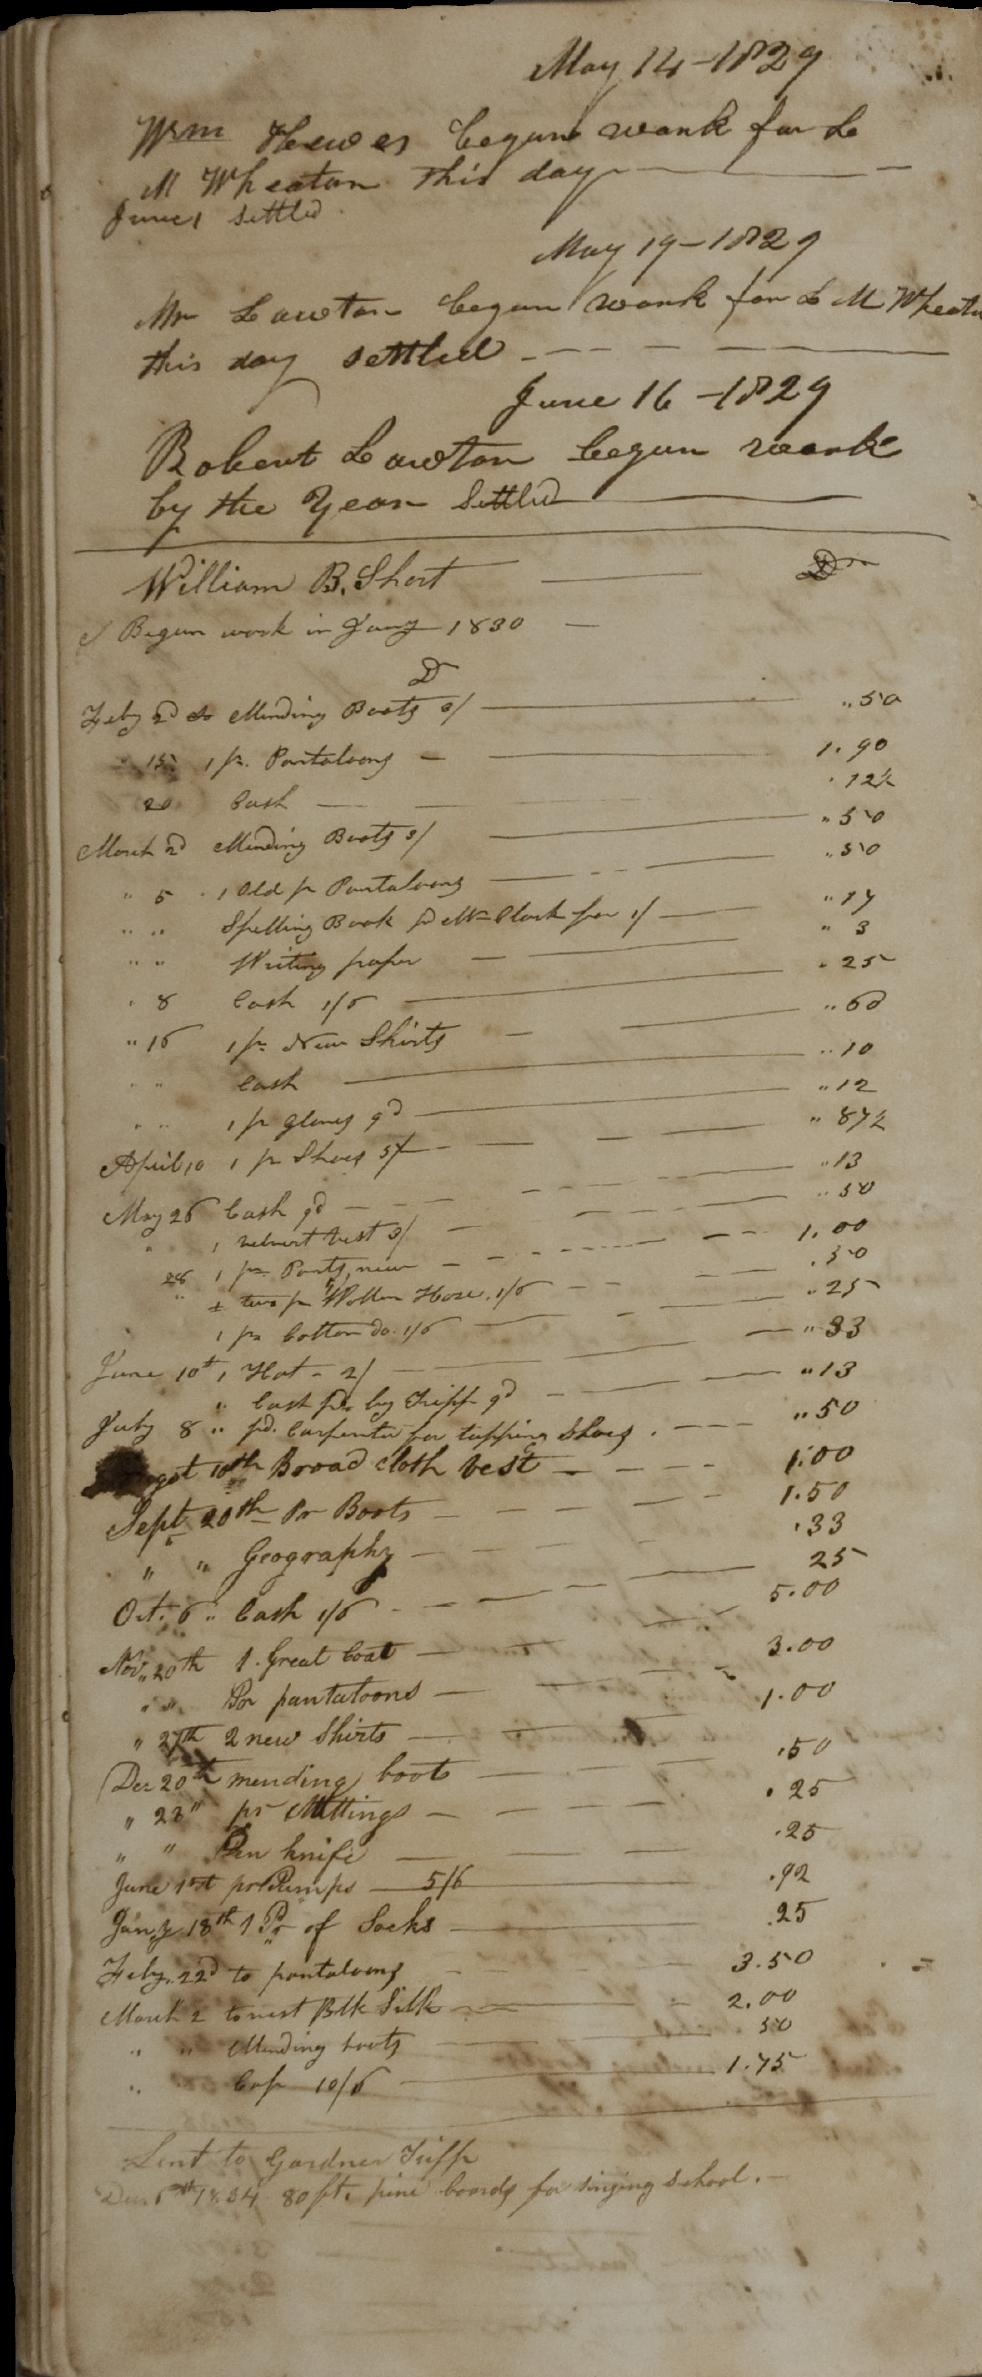 May 14 - 1829
Wm Hewes began work for L
M Wheaton this day
June 1 settled
May 19 - 1829
Mr Lawton began work for L M Wheaton
this day settled
June 16 - 1829
Robert Lawton began work
by the Year Settled
William B. Short Dr
Begun work in Jany 1830
D
Feby 2d to Mending Boots 3/ .. 50
" 15 1 pr. Pantaloons 1.90
20 Cash . 12½
March 2d Mending Boots 3/ .. 50
" 5 . 1 Old pr Pantaloons .. 50
" " Spelling Book pd Mr Clark for 1/ .. 17
" " Writing paper " 3
. 8 Cash 1/6 . 25
" 16 1 pr New Shirts .. 60
" " Cash .. 10
" " 1 pr Gloves 9d .. 12
April 10 1 pr Shoes 5/ .. 87½
May 26 Cash 9d .. 13
" 1 velvert vest 3/ .. 50
28 1 pr Pants, new 1.00
" two pr Wollen Hose. 1/6 . 50
1 pr Cotton do. 1/6 . 25
June 10th 1 Hat - 2/ .. 33
" Cash pd. by Tripp 9d .. 13
July 8 .. pd. Carpenter for tapping Shoes . .. 50
10th Broad cloth vest 1.00
Sept 20th Pr Boots 1.50
" " Geography .33
Oct. 6 .. Cash 1/6 25
Nov. 20th 1. Great Coat 5.00
" " Pr pantaloons 3.00
" 27th 2 new Shirts 1.00
Dec 20th mending boots .50
" 28" pr Mittings . 25
" " Pen knife .25
June 1st pr Pumps 5/6 .92
Jany 18th 1 Pr of Socks .25
Feby. 22d to pantaloons 3.50
March 2 to vest Blk Silk 2.00
" " Mending boots 50
" Cap 10/6 1.75
Lent to Gardner Tripp
1834 80 ft. pine boards for singing School.